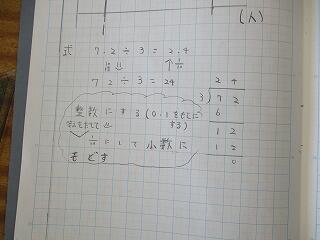 (人)
式 7.2÷3=2.4
72÷3=24
整数にする(0.1をもとにする)
1/10にして小数に
もどす
1/10
24
3)72
6
12
12
0